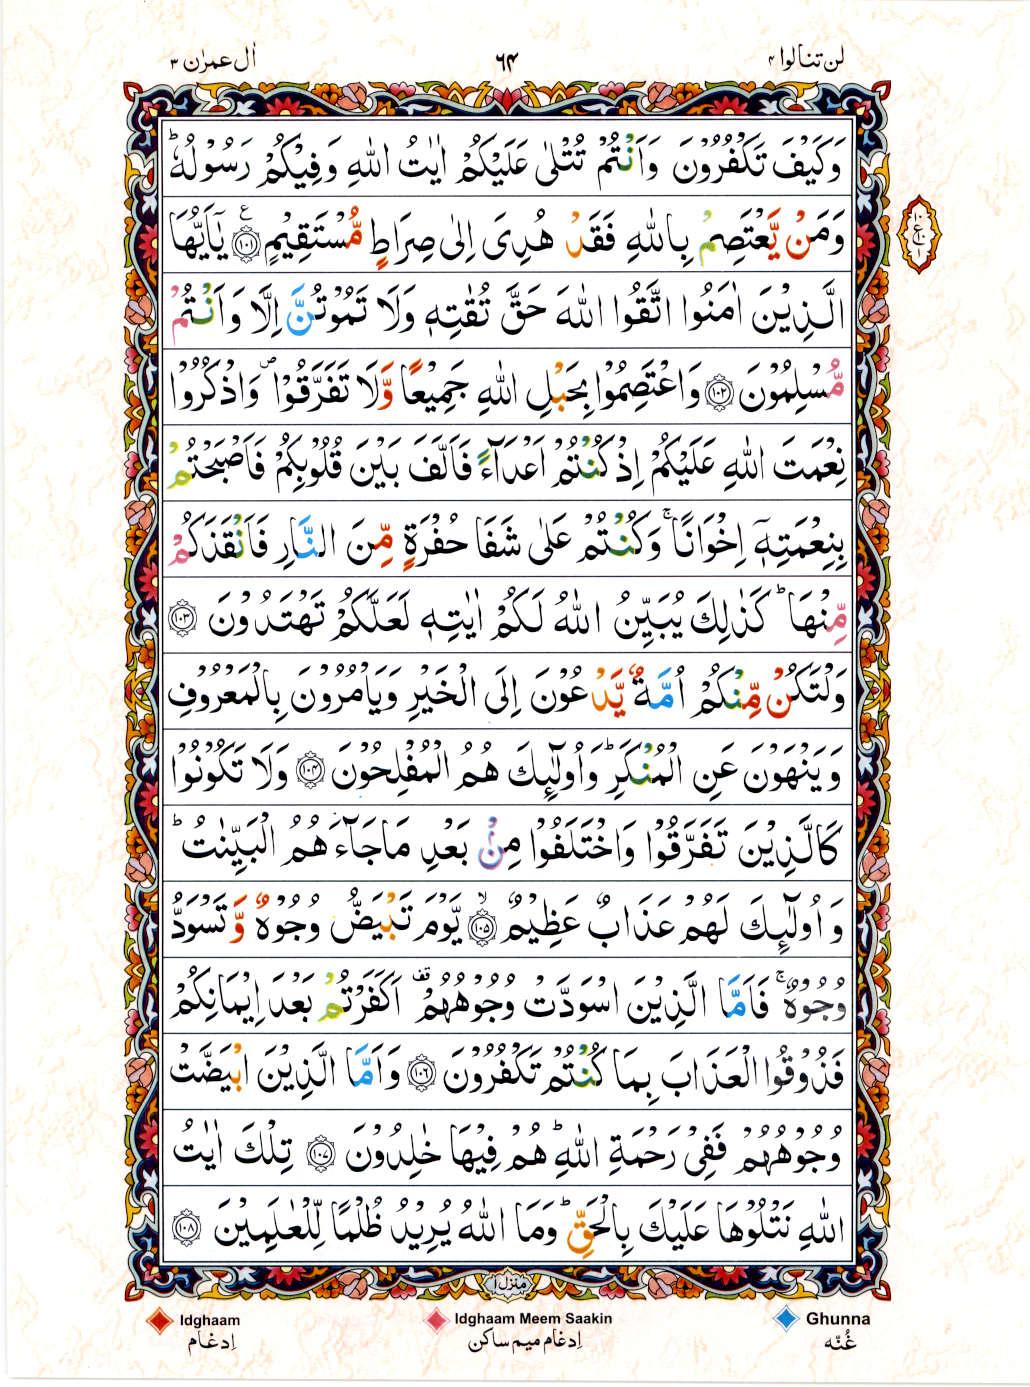 لن تنالوا ۴
٦۴
اٰل عمرٰن ۳
وَكَيْفَ تَكْفُرُوْنَ وَاَنْتُمْ تُتْلٰى عَلَيْكُمْ اٰيٰتُ اللّٰهِ وَفِيْكُمْ رَسُوْلُهٗ ؕ
وَمَنْ يَّعْتَصِمْ بِاللّٰهِ فَقَدْ هُدِىَ اِلٰى صِرَاطٍ مُّسْتَقِيْمٍ ﴿۱۰۱﴾ ع يٰۤاَيُّهَا
الَّذِيْنَ اٰمَنُوا اتَّقُوا اللّٰهَ حَقَّ تُقٰتِهٖ وَلَا تَمُوْتُنَّ اِلَّا وَاَنْتُمْ
مُّسْلِمُوْنَ ﴿۱۰۲﴾ وَاعْتَصِمُوْا بِحَبْلِ اللّٰهِ جَمِيْعًا وَّلَا تَفَرَّقُوْا ۖ وَاذْكُرُوْا
نِعْمَتَ اللّٰهِ عَلَيْكُمْ اِذْ كُنْتُمْ اَعْدَآءً فَاَلَّفَ بَيْنَ قُلُوْبِكُمْ فَاَصْبَحْتُمْ
بِنِعْمَتِهٖۤ اِخْوَانًا ۚ وَكُنْتُمْ عَلٰى شَفَا حُفْرَةٍ مِّنَ النَّارِ فَاَنْقَذَكُمْ
مِّنْهَا ؕ كَذٰلِكَ يُبَيِّنُ اللّٰهُ لَكُمْ اٰيٰتِهٖ لَعَلَّكُمْ تَهْتَدُوْنَ ﴿۱۰۳﴾
وَلْتَكُنْ مِّنْكُمْ اُمَّةٌ يَّدْعُوْنَ اِلَى الْخَيْرِ وَيَاْمُرُوْنَ بِالْمَعْرُوْفِ
وَيَنْهَوْنَ عَنِ الْمُنْكَرِ ؕ وَاُولٰٓئِكَ هُمُ الْمُفْلِحُوْنَ ﴿۱۰۴﴾ وَلَا تَكُوْنُوْا
كَالَّذِيْنَ تَفَرَّقُوْا وَاخْتَلَفُوْا مِنْۢ بَعْدِ مَا جَآءَهُمُ الْبَيِّنٰتُ ؕ
وَاُولٰٓئِكَ لَهُمْ عَذَابٌ عَظِيْمٌ ﴿۱۰۵﴾ ۙ يَّوْمَ تَبْيَضُّ وُجُوْهٌ وَّتَسْوَدُّ
وُجُوْهٌ ۚ فَاَمَّا الَّذِيْنَ اسْوَدَّتْ وُجُوْهُهُمْ قف اَكَفَرْتُمْ بَعْدَ اِيْمَانِكُمْ
فَذُوْقُوا الْعَذَابَ بِمَا كُنْتُمْ تَكْفُرُوْنَ ﴿۱۰۶﴾ وَاَمَّا الَّذِيْنَ ابْيَضَّتْ
وُجُوْهُهُمْ فَفِىْ رَحْمَةِ اللّٰهِ ؕ هُمْ فِيْهَا خٰلِدُوْنَ ﴿۱۰۷﴾ تِلْكَ اٰيٰتُ
اللّٰهِ نَتْلُوْهَا عَلَيْكَ بِالْحَقِّ ؕ وَمَا اللّٰهُ يُرِيْدُ ظُلْمًا لِّلْعٰلَمِيْنَ ﴿۱۰۸﴾
منزل ۱
Idghaam
اِدغام
Idghaam Meem Saakin
اِدغام میم ساکن
Ghunna
غُنّه